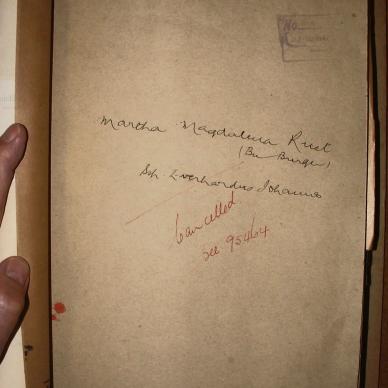 No
Martha Magdalena Riet
(Bn Burger)
Sp. Everhardus Johannes
Cancelled
see 95464